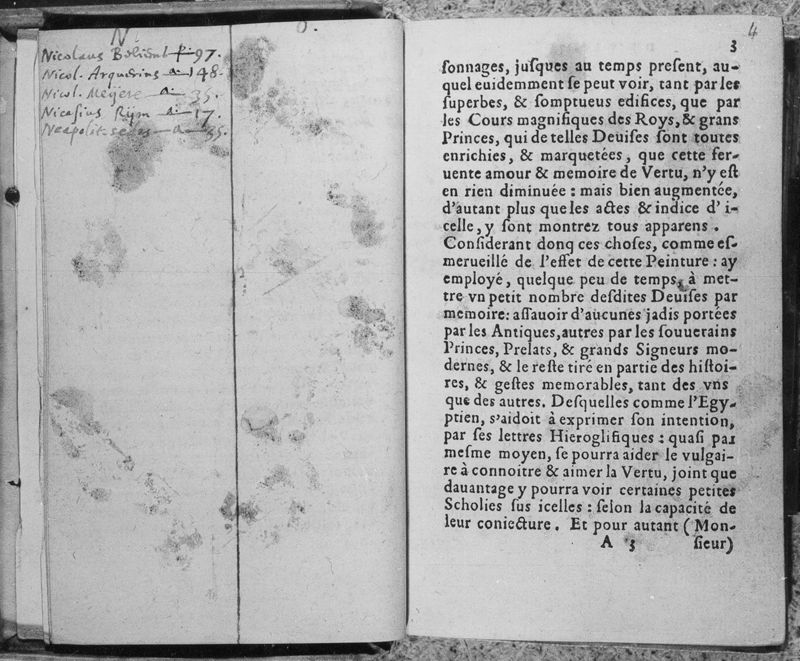 N.
O.
Nicolaus
97.
Nicol. 148.
Nicol. Meyere a 35.
Nicasius Rijm a 17.
a 35.
4
3
ſonnages, juſques au temps preſent, au-
quel euidemment ſe peut voir, tant par les
ſuperbes, & ſomptueus edifices, que par
les Cours magnifiques des Roys, & grans
Princes, qui de telles Deuiſes ſont toutes
enrichies, & marquetées, que cette fer-
uente amour & memoire de Vertu, n'y eſt
en rien diminuée : mais bien augmentée,
d'autant plus que les actes & indice d' i-
celle, y ſont montrez tous apparens .
Conſiderant donq ces choſes, comme eſ-
merueillé de l'effet de cette Peinture : ay
employé, quelque peu de temps, à met-
tre vn petit nombre deſdites Deuiſes par
memoire: aſſauoir d'aucunes jadis portées
par les Antiques, autres par les ſouuerains
Princes, Prelats, & grands Signeurs mo-
dernes, & le reſte tiré en partie des hiſtoi-
res, & geſtes memorables, tant des vns
que des autres. Deſquelles comme l'Egy-
ptien, s'aidoit à exprimer ſon intention,
par ſes lettres Hieroglifiques : quaſi par
meſme moyen, ſe pourra aider le vulgai-
re à connoitre & aimer la Vertu, joint que
dauantage y pourra voir certaines petites
Scholies ſus icelles : ſelon la capacité de
leur coniecture . Et pour autant ( Mon-
A 3 ſieur)